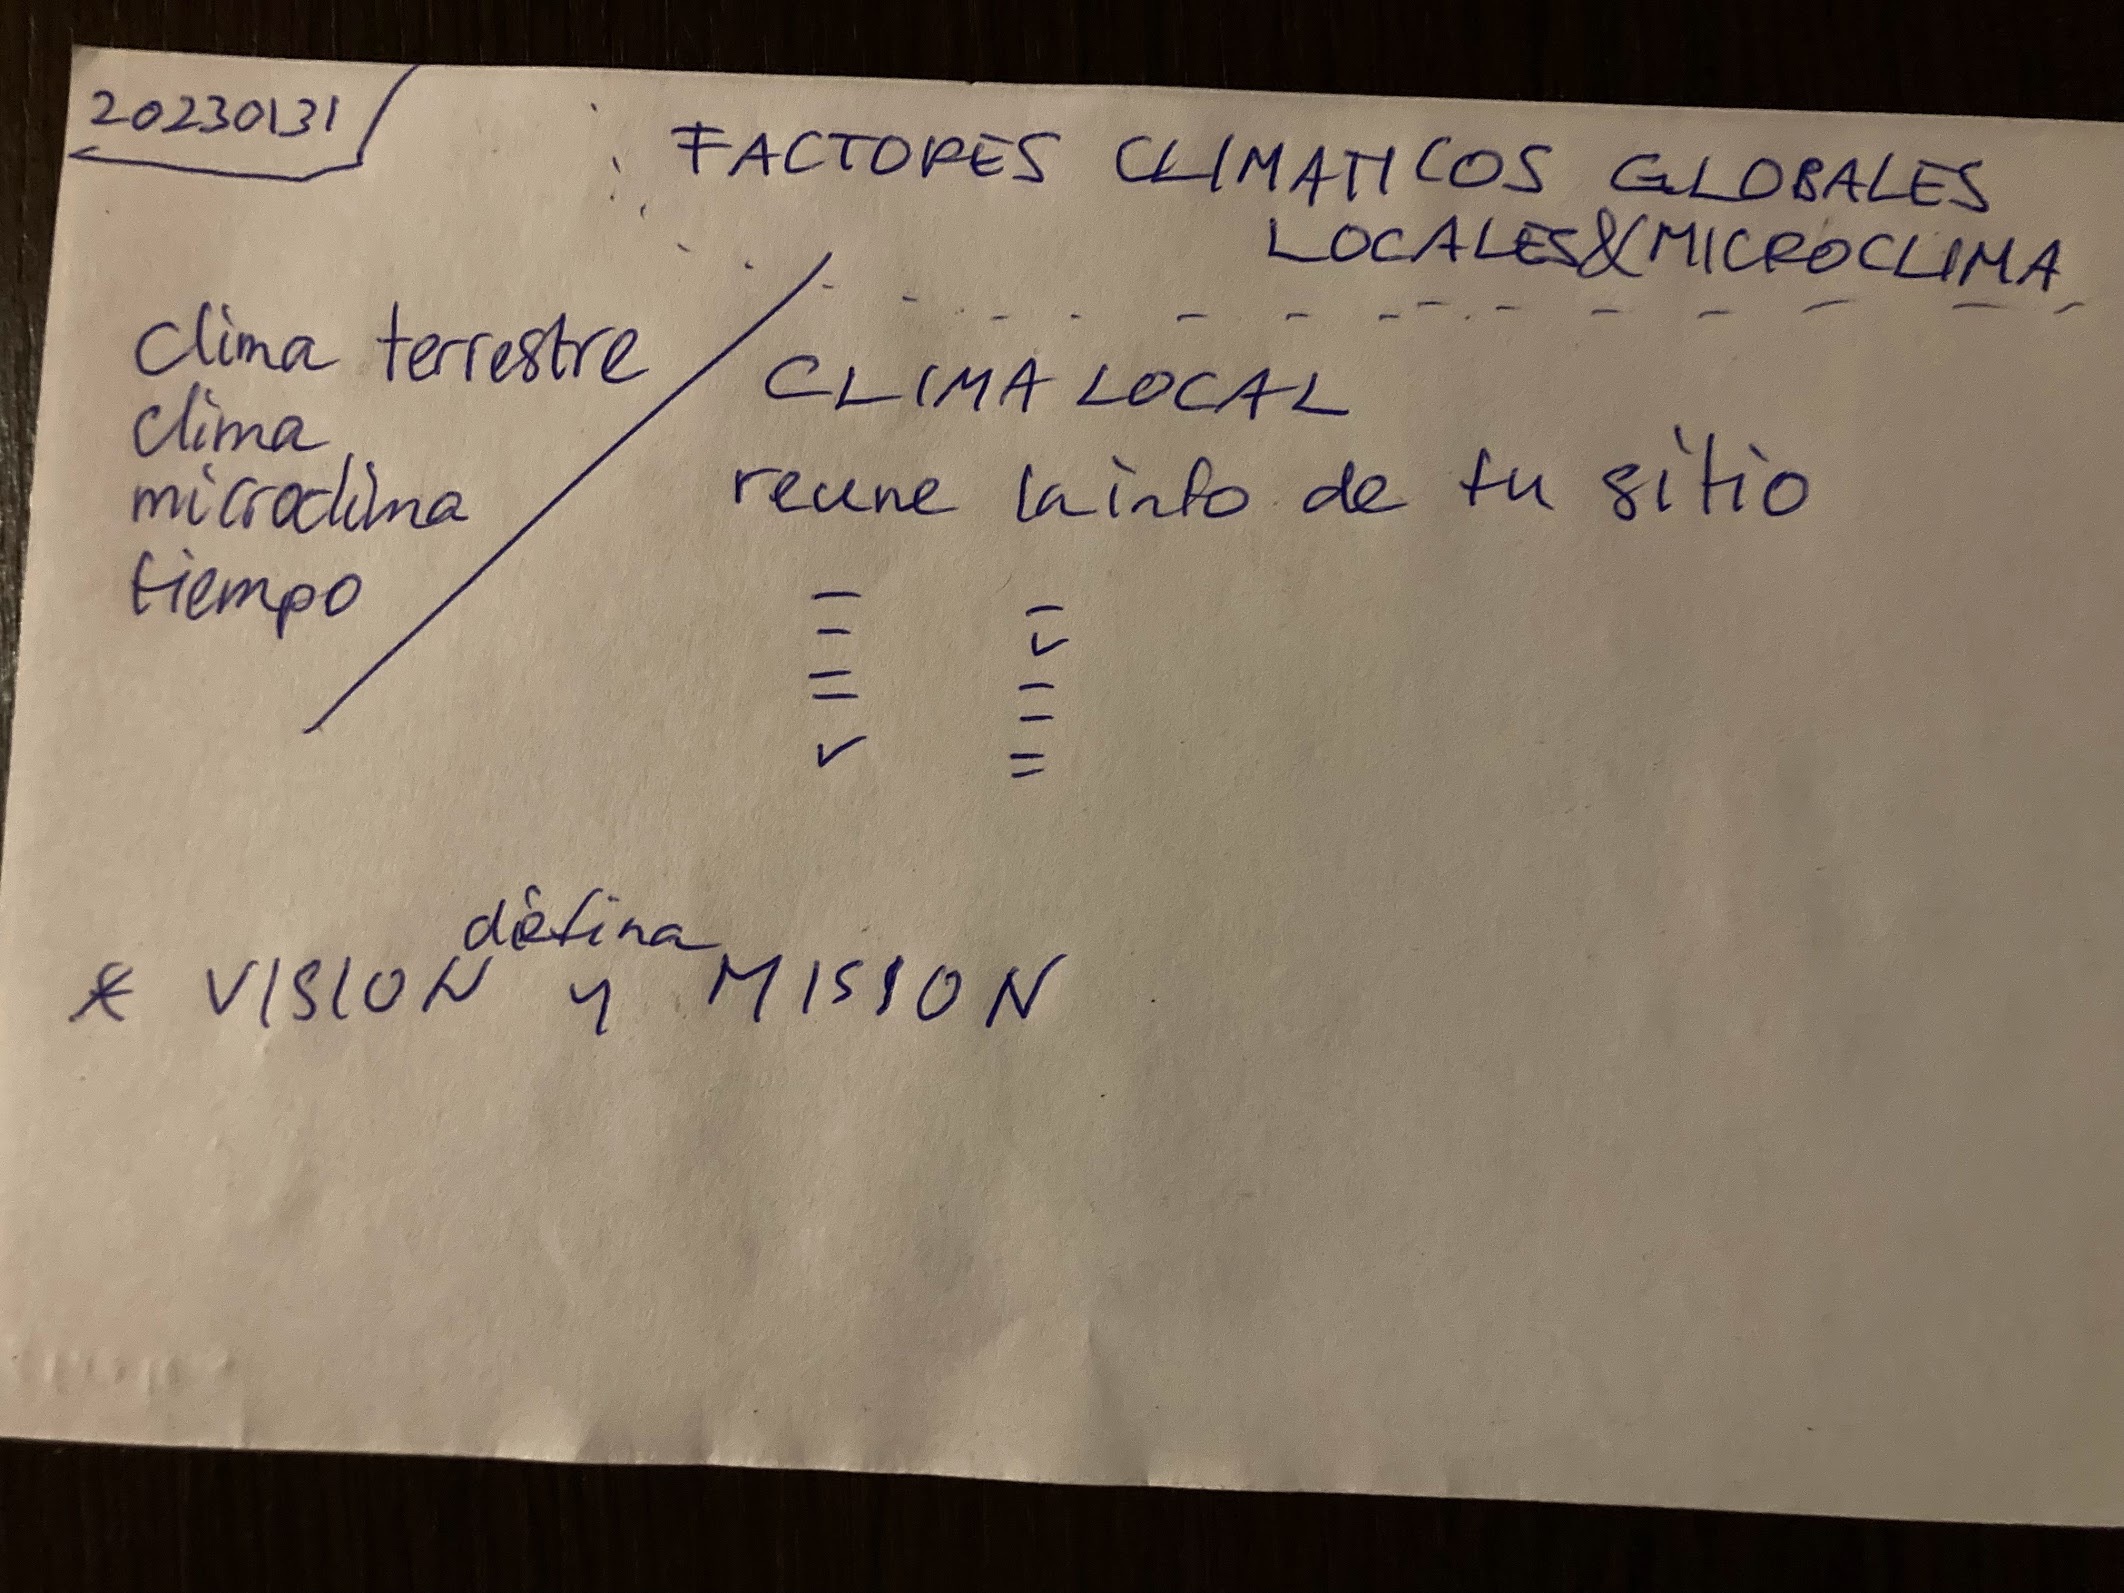 20230131
FACTORES CLIMATICOS GLOBALES
LOCALES&MICROCLIMA
clima terrestre
clima
microclima
tiempo
CLIMA LOCAL
reune la info de tu sitio
defina
* VISION y MISSION